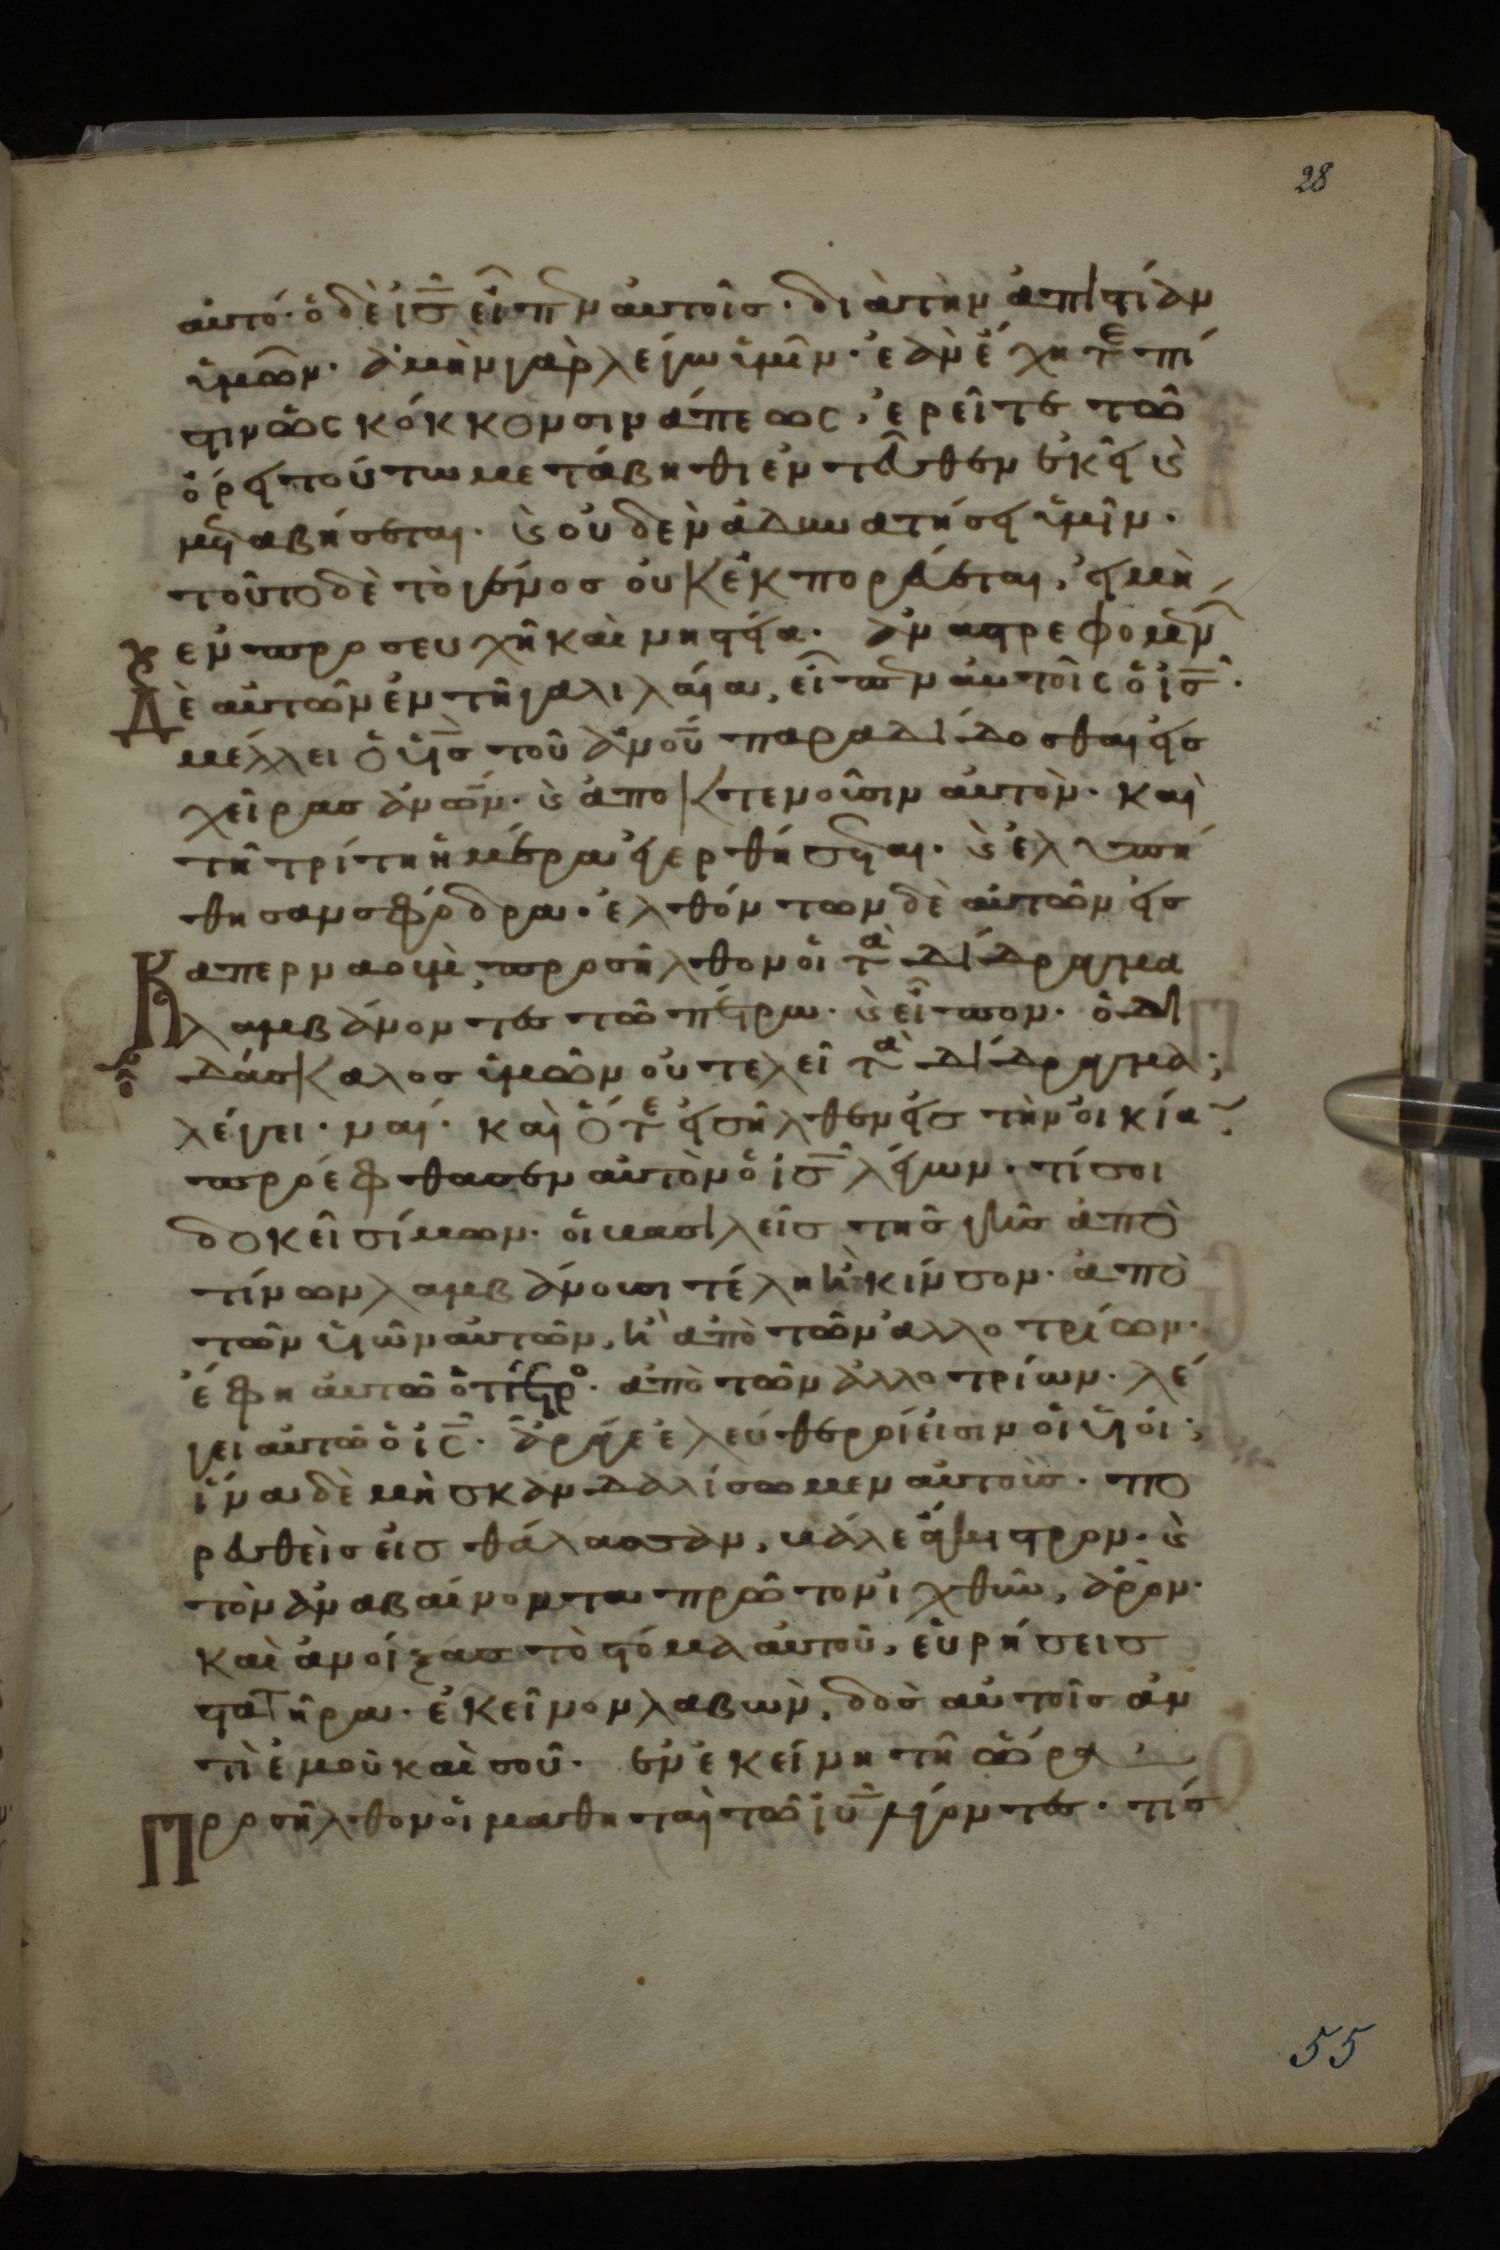 28
αὐτό· ὁ δὲ ις̅ εἶπεν αὐτοῖσ· διὰ τὴν ἀπιστίαν
ὑμῶν· ἀμὴν γὰρ λέγω ὑμῖν· ἐὰν ἔχητε πί
στιν ὡς κόκκον σινάπεως, ἐρεῖτε τῶ
ὄρει τούτω μετάβηθι ἐντεῦθεν ἐκεῖ καὶ
μεταβήσεται· καὶ οὐδὲν ἀδυνατήσει ὑμῖν·
τοῦτο δὲ τὸ γένοσ οὐκ ἐκπορεύεται, εἰ μὴ
ἐν προσευχῆ καὶ νηστεία· ἀναστρεφομέν
Δὲ αὐτῶν ἐν τῆ γαλιλαία, εἶπεν αὐτοῖς ὁ ις̅·
μέλλει ὁ υἱσ̅ τοῦ ἀνου̅ παραδίδοσθαι εἰσ
χεῖρασ ἀνω̅ν· καὶ ἀποκτενοῦσιν αὐτὸν· καὶ
τῆ τρίτη ἡμέρα ἐγερθήσεται· καὶ ἐλυπή
θησαν σφόδρα· ἐλθόντων δὲ αὐτῶν εἰσ
Καπερναοὺμ, προσῆλθον οἱ τὰ δίδραγμα
λαμβάνοντεσ τῶ πέτρω· καὶ εἶπον· ὁ δι
δάσκαλοσ ὑμῶν οὐ τελεῖ τὰ δίδραγμα;
λέγει· ναί· καὶ ὅτε εἰσῆλθεν εἰσ τὴν οἰκίαν
προέφθασεν αὐτὸν ὁ ις̅ λέγων· τί σοι
δοκεῖ σίμων· οἱ βασιλεῖσ τῆσ γῆσ ἀπὸ
τίνων λαμβάνουσι τέλη ἢ κίνσον· ἀπὸ
τῶν υἱῶν αὐτῶν, ἢ ἀπὸ τῶν ἀλλοτρίων·
ἔφη αὐτῶ ὁ πέτρο· ἀπὸ τῶν ἀλλοτρίων· λέ
γει αὐτῶ ὁ ις̅· ἄραγε ἐλεύθεροί εἰσιν οἱ υἱοί;
ἵνα δὲ μὴ σκανδαλίσωμεν αὐτοὺσ· πο
ρευθεὶσ εἰσ θάλασσαν, βάλε ἄγκιστρον· καὶ
τὸν ἀναβαίνοντα πρῶτον ἰχθῦν, ἆρον·
καὶ ἀνοίξασ τὸ στόμα αὐτοῦ, εὑρήσεισ
στατῆρα· ἐκεῖνον λαβὼν, δὸσ αὐτοῖσ ἀν
τὶ ἐμοῦ καὶ σοῦ· ἐν ἐκείνη τῆ ὥρα
Προσῆλθον οἱ μαθηταὶ τῶ ιυ̅ λέγοντεσ· τίσ
55